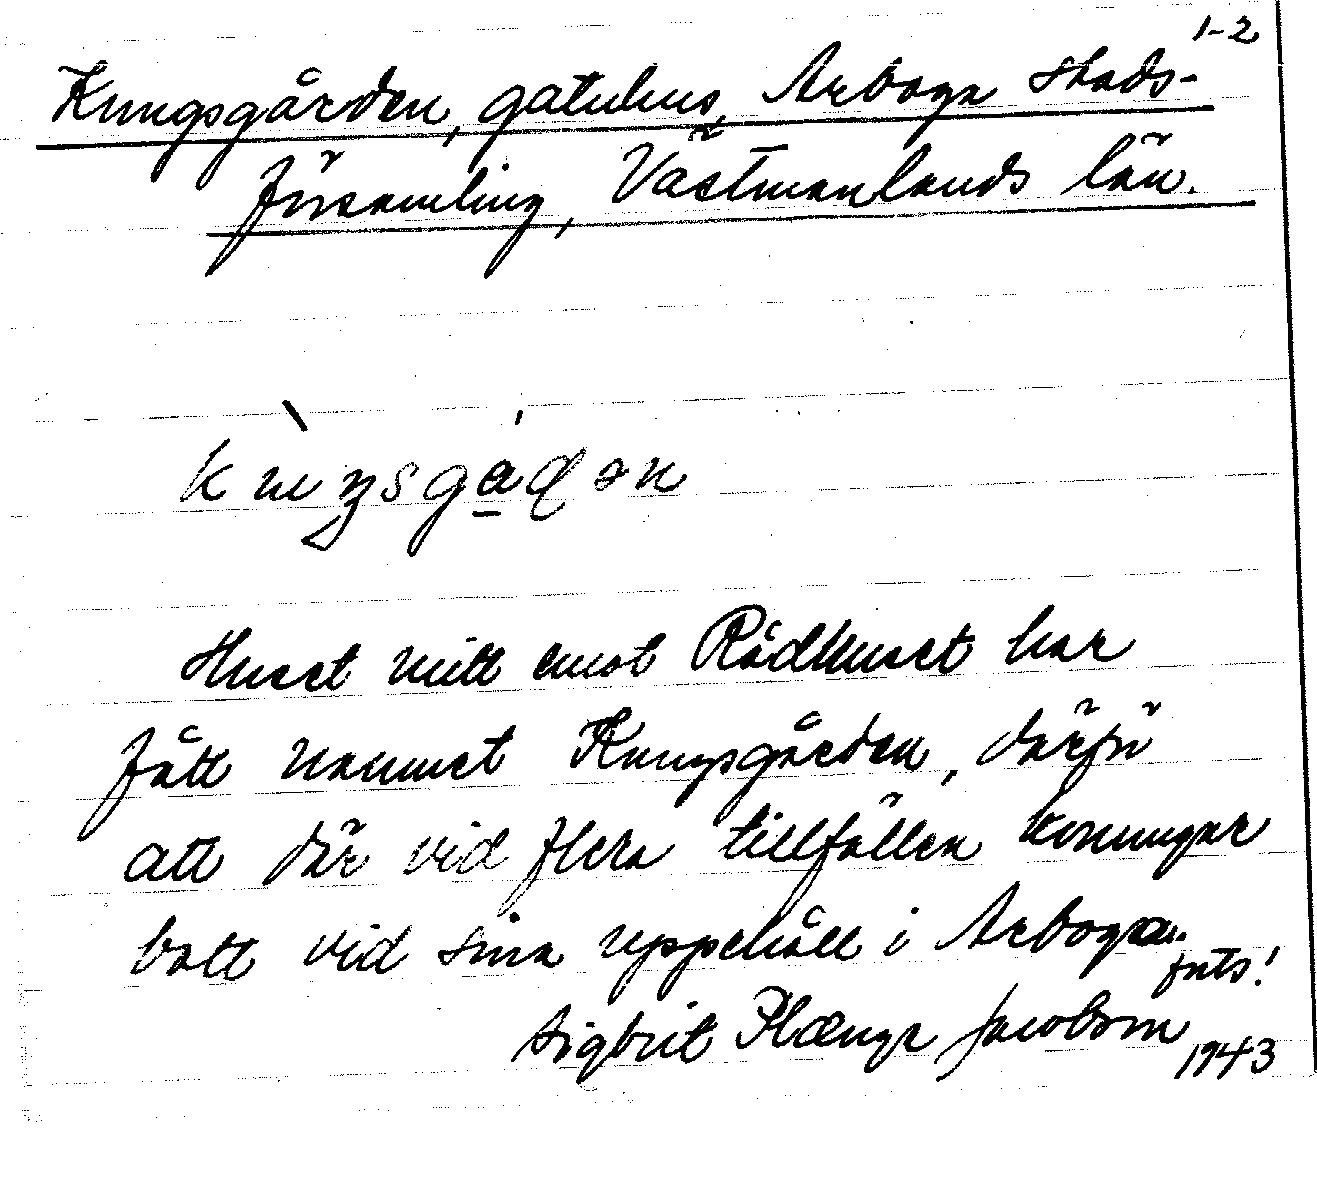 1-2
Kungsgården, gatuhus, Arboga stads-
församling, Västmanlands län.
Huset mitt emot Rådhuset har
fått namnet Kungsgården, därför
att där vid flera tillfällen konungar
bott vid sina uppehåll i Arboga.
forts!
Sigbrit Plænge Jacobson
1943